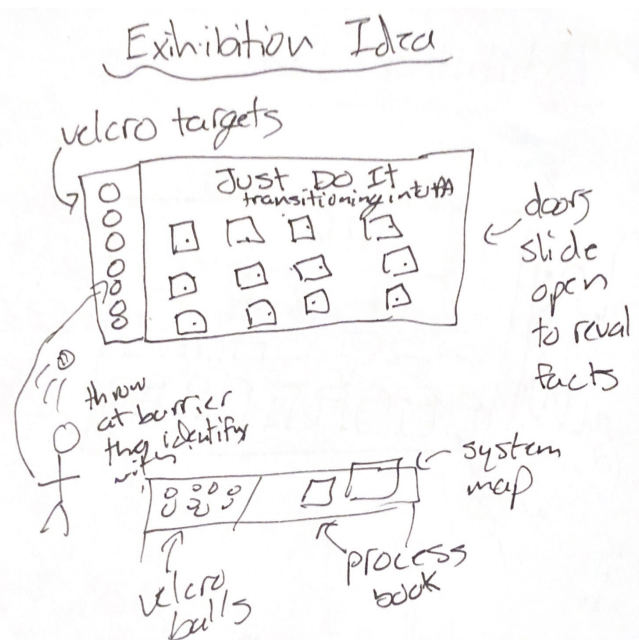 Exihibition Idea
velcro targets
Just Do It
transitioning into
doors
slide
open
to reval
facts
throw
at barrier
they identify
with
system
map
process
book
velcro
balls